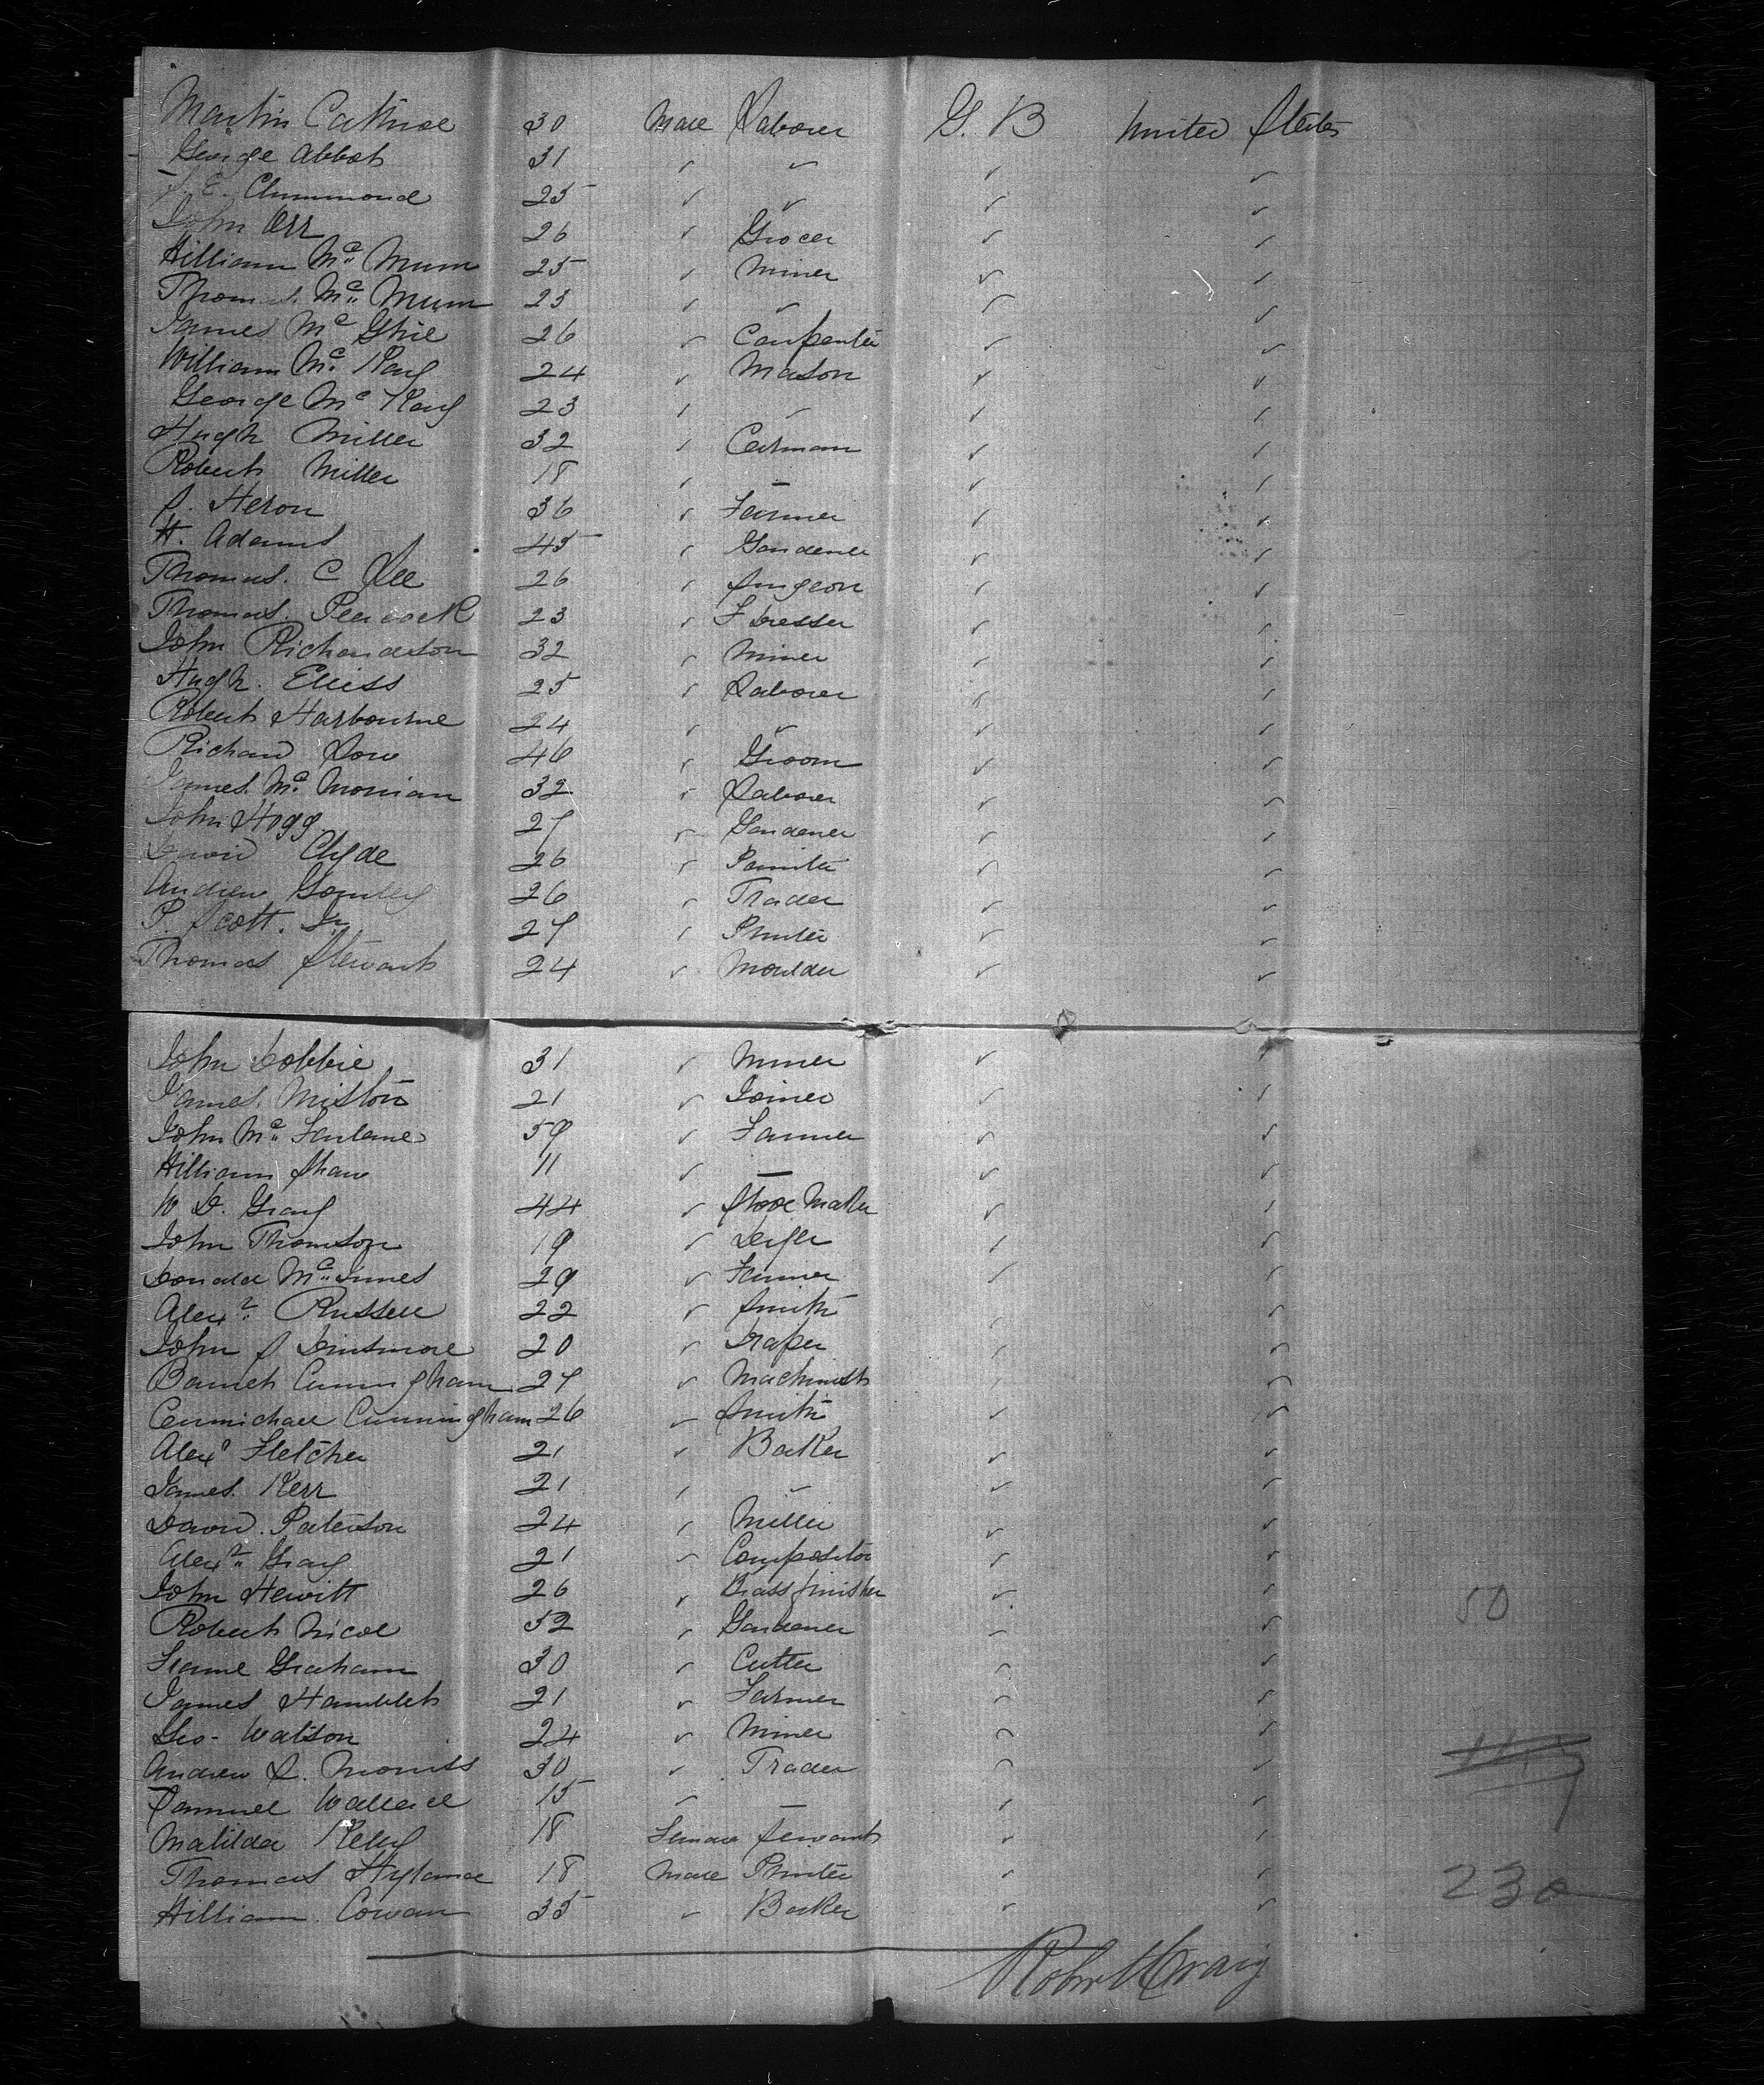 Martin 30 Male Laborer G. B United States
George Abbot 31 " " " "
Chummond 25 " " " "
John Orr 26 " Grocer " "
William Mc Mum 25 " Miner " "
Thomas Mc Mum 23 " " " "
James Mc Ghie 26 " Carpenter " "
William Mc Kay 24 " Mason " "
George Mc Kay 23 " " " "
Hugh Miller 32 " Carman " "
Robert Miller 18 " — " "
S. Heron 36 " Farmer " "
H. Adams 45 " Gardener " "
Thomas. C Lee 26 " Surgeon " "
Thomas Peacock 23 " F Dresser " "
John Richardson 32 " Miner " "
Hugh. Elliss 25 " Laborer " "
Robert Harbourne 24 " " " "
Richard Low 46 " Groom " "
James Mc 32 " Laborer " "
John Hogg 27 " Gardener " "
David Clyde 26 " Painter " "
Andrew 26 " Trader " "
P. Scott. Jr 27 " Printer " "
Thomas Stewart 24 " Moulder " "
John Dobbie 31 " Miner " "
James 21 " Joiner " "
John Mc Farlane 59 " Farmer " "
William Shaw 11 " — " "
W D. Gray 44 " Shoe Maker " "
John Thomson 19 " " "
Donald Mc Innes 29 " Farmer " "
Alexr Russell 22 " Smith " "
John S Dinsmore 20 " Draper " "
Cunningham 27 " Machinist " "
Carmichael Cunningham 26 " Smith " "
Alexr Fletcher 21 " Baker " "
James Kerr 21 " " " "
David. Paterson 24 " Miller " "
Alexr Gray 21 " Compositor " "
John Hewitt 26 " Brass finisher " " 50
Robert Nicol 52 " Gardener " "
Graham 30 " Cutter " "
James Hamblet 21 " Farmer " "
Geo- Watson 24 " Miner " "
Andrew L. Morriss 30 " Trader " "
Samuel Wallace 15 " — " "
Matilda Kelly 18 Female Servant " "
Thomas Hyland 18 Male Printer " " 230
William. Cowan 35 " Baker " "
Robert Craig